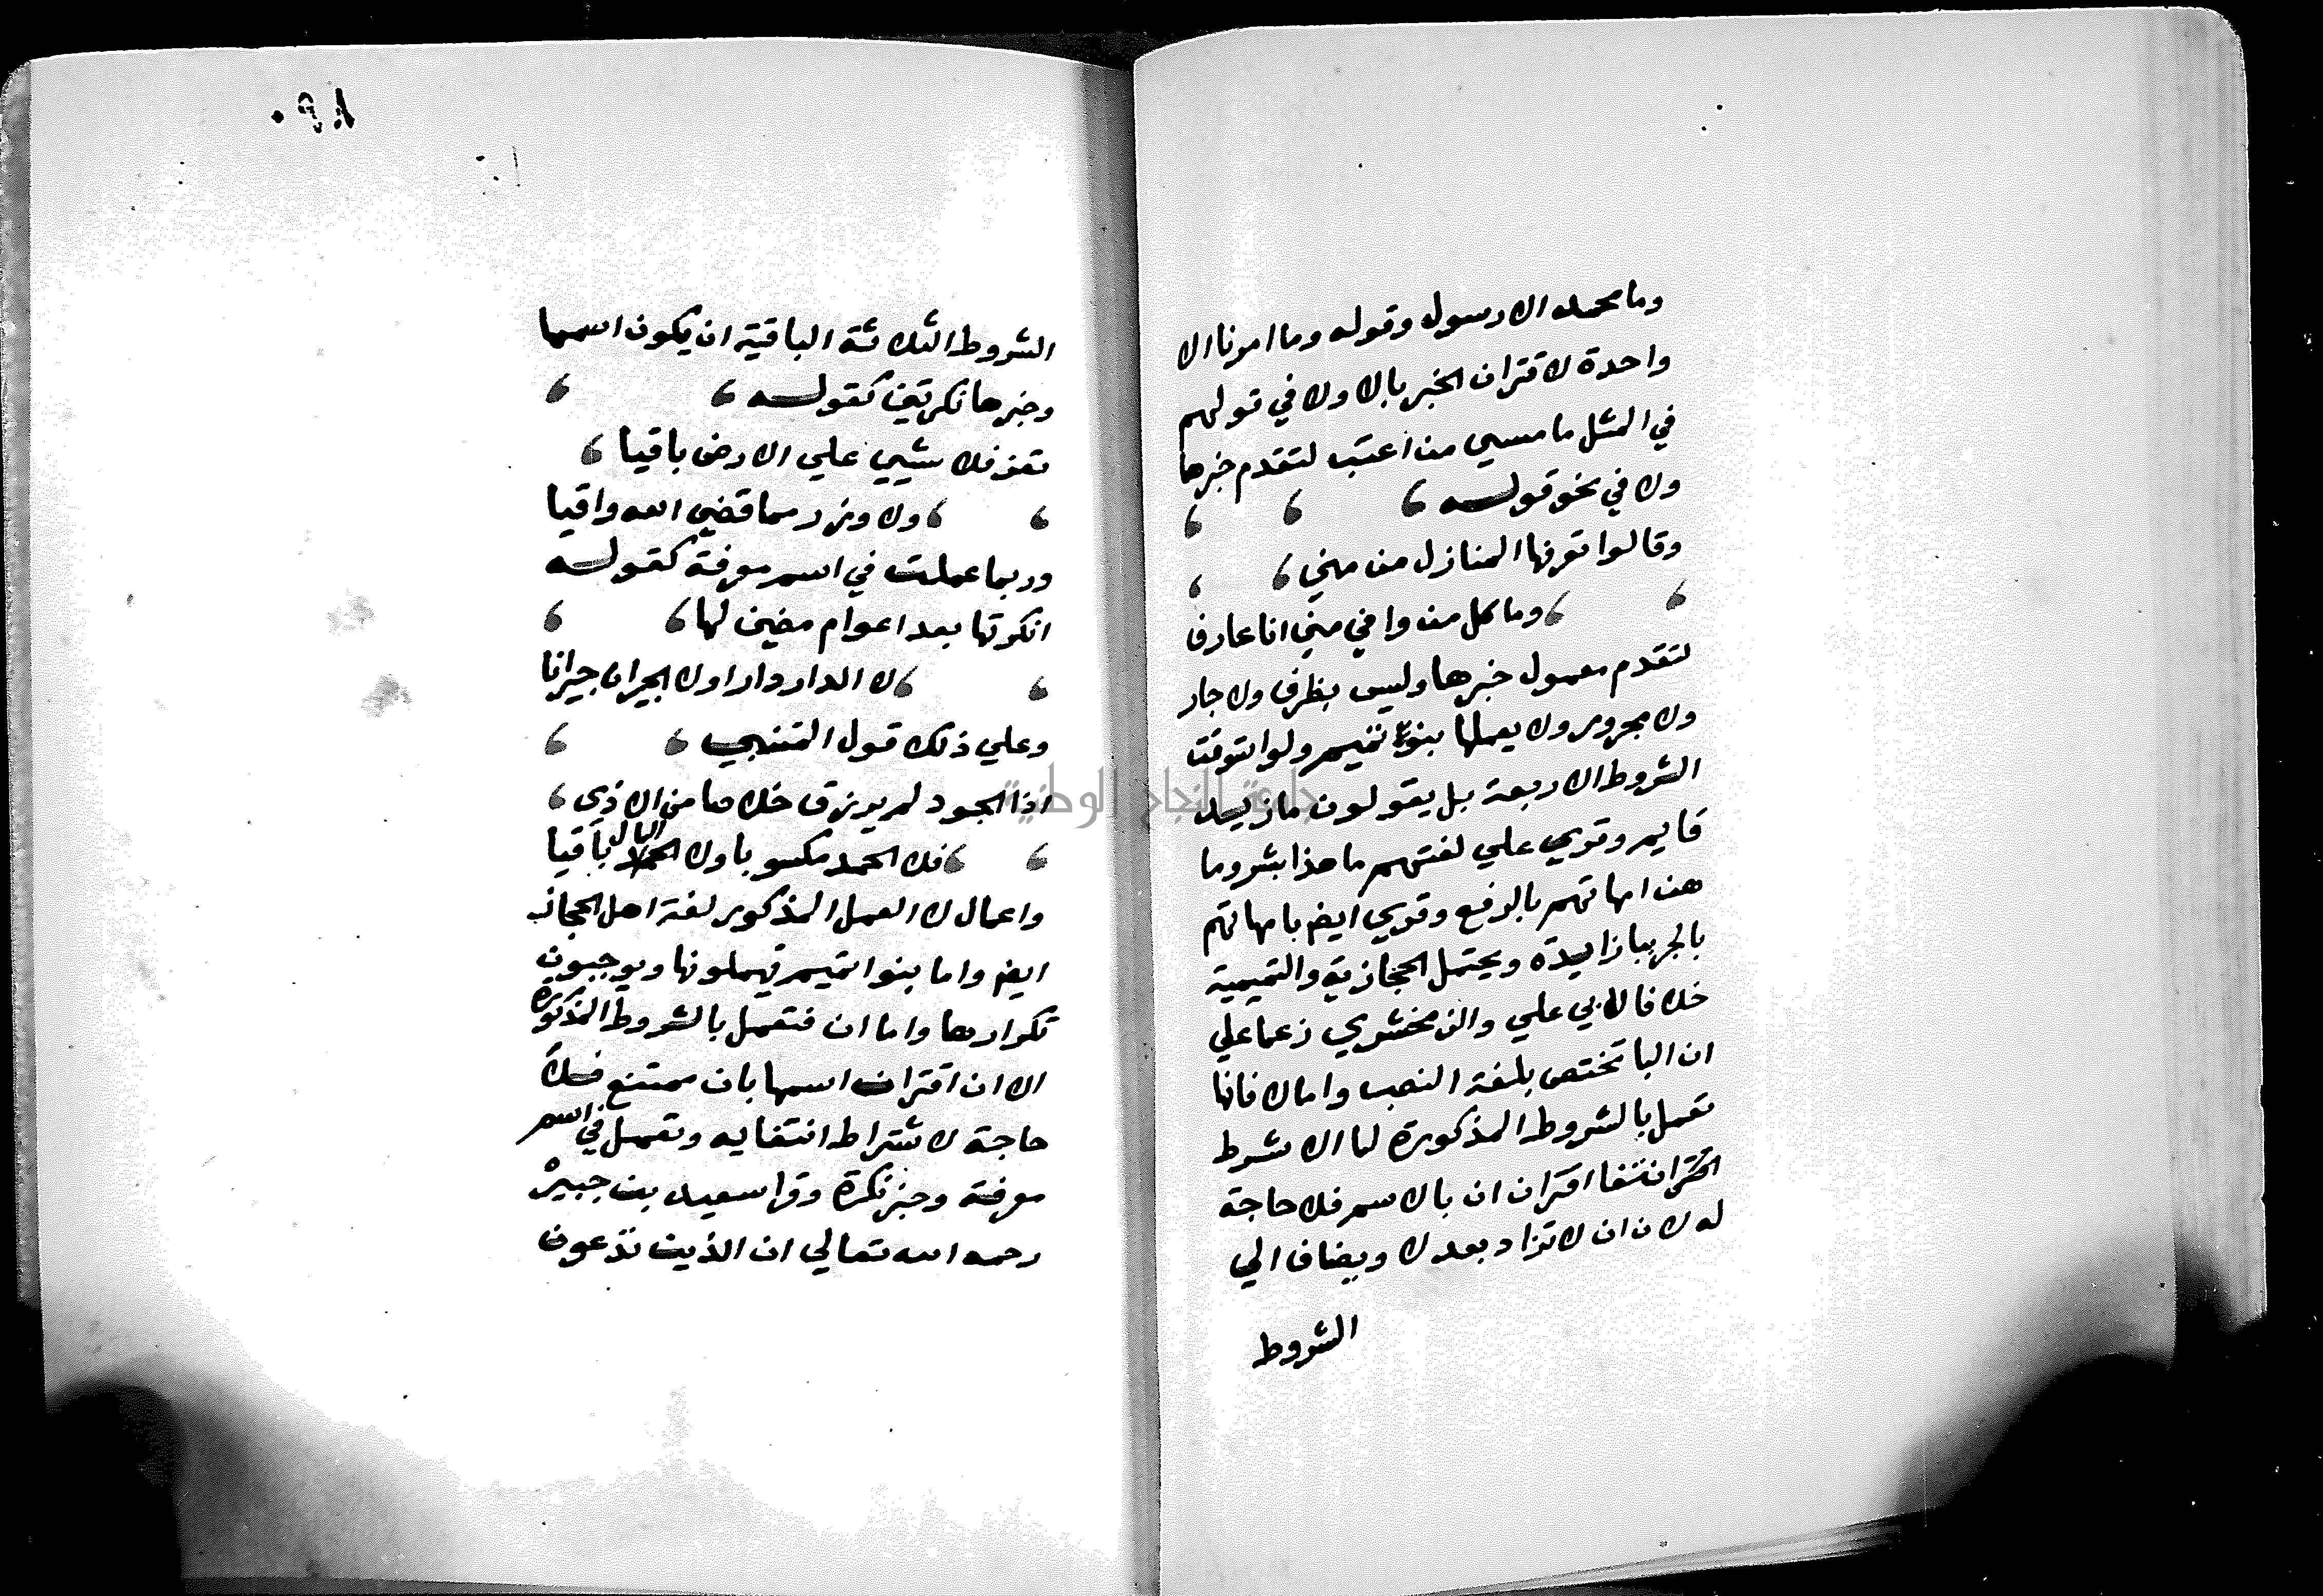 وما محمد الا رسول وقوله وما امرنا الا
واحدة لاقتران الخبر بالا ولا في قولهم
في المثل ما مسيي من اعتب لتقدم خبرها
ولا في نحو قولـــه
وقالوا تعرفها المنازل من مني
وما كل من وافي مني انا عارف
لتقدم معمول خبرها وليس بظرف ولا جار
ولا مجرور ولا يعملها بنوا تميم ولو استوفت
الشروط الاربعة بل يقولون ما زيد
قايم وقري علي لغتهم ما هذا بشر وما
هن امهاتهم بالرفع وقري ايض بامهاتهم
بالجر ببا زايدة ويحتمل الحجازية والتميمية
خلافا لابي علي والزمخشري زعما علي
ان البا تختص بلغة النصب واما لا فانها
تعمل بالشروط المذكورة لما الا شرط
انتفا اقتران ان بالاسم فلا حاجة
له لان ان لا تزاد بعد لا ويضاف الي
الشروط
٠٩٨
الشروط الثلاثة الباقية ان يكون اسمها
وخبرها نكرتين كقولـــه
تعز فلا شيي علي الارض باقيا
ولا وزر مما قضي الله واقيا
وربما عملت في اسم معرفة كقولـــه
انكرتها بعد اعوام مضين لها
لا الدار دارا ولا الجيران جيرانا
وعلي ذلك قول المتنبي
اذا الجود لم يرزق خلاصا من الاذي
فلا الحمد مكسوبا ولا المال باقيا
واعمال لا العمل المذكور لغة اهل الحجاز
ايض واما بنوا تميم فيهملونها ويوجبون
تكرارها واما ان فتعمل بالشروط المذكورة
الا ان اقتران اسمها بان ممتنع فلا
حاجة لاشتراط انتفايه وتعمل في اسم
معرفة وخبر نكرة وقرا سعيد بن جبير
رحمه الله تعالي ان الذين تدعون
جامعة النجاح الوطنية